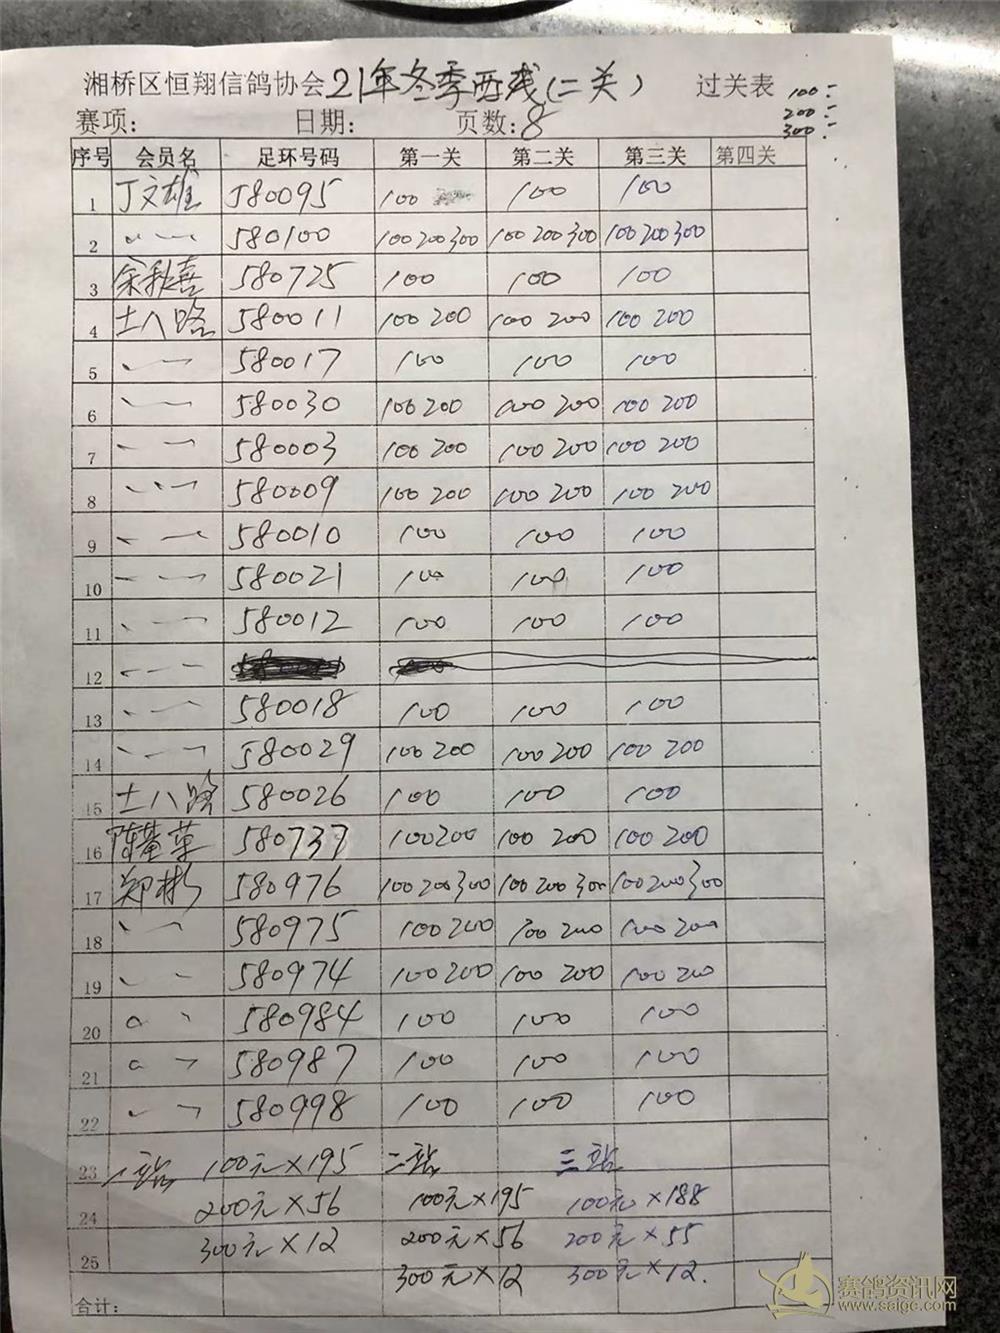 湘桥区恒翔信鸽协会21年冬季两关(二关) 过关表 100:
赛项: 日期: 页数:8 200:
300:
序号 会员名 足环号码 第一关 第二关 第三关 第四关
1 丁文雄 580095 100 100 100
2 580100 100 200 300 100 200 300 100 200 300
3 余秋喜 580725 100 100 100
4 士八路 580011 100 200 100 200 100 200
5 580017 100 100 100
6 580030 100 200 100 200 100 200
7 580003 100 200 100 200 100 200
8 580009 100 200 100 200 100 200
9 580010 100 100 100
10 580021 100 100 100
11 580012 100 100 100
12
13 580018 100 100 100
14 580029 100 200 100 200 100 200
15 士八路 580026 100 100 100
16 580737 100 200 100 200 100 200
17 郑彬 580976 100 200 300 100 200 300 100 200 300
18 580975 100 200 100 200 100 200
19 580974 100 200 100 200 100 200
20 580984 100 100 100
21 580987 100 100 100
22 580998 100 100 100
23 一站 100元×195 二站 三站
24 200元×56 100元×195 100元×188
25 300元×12 200元×56 200元×55
300元×12 300元×12.
合计:
赛鸽资讯网
www.saige.com